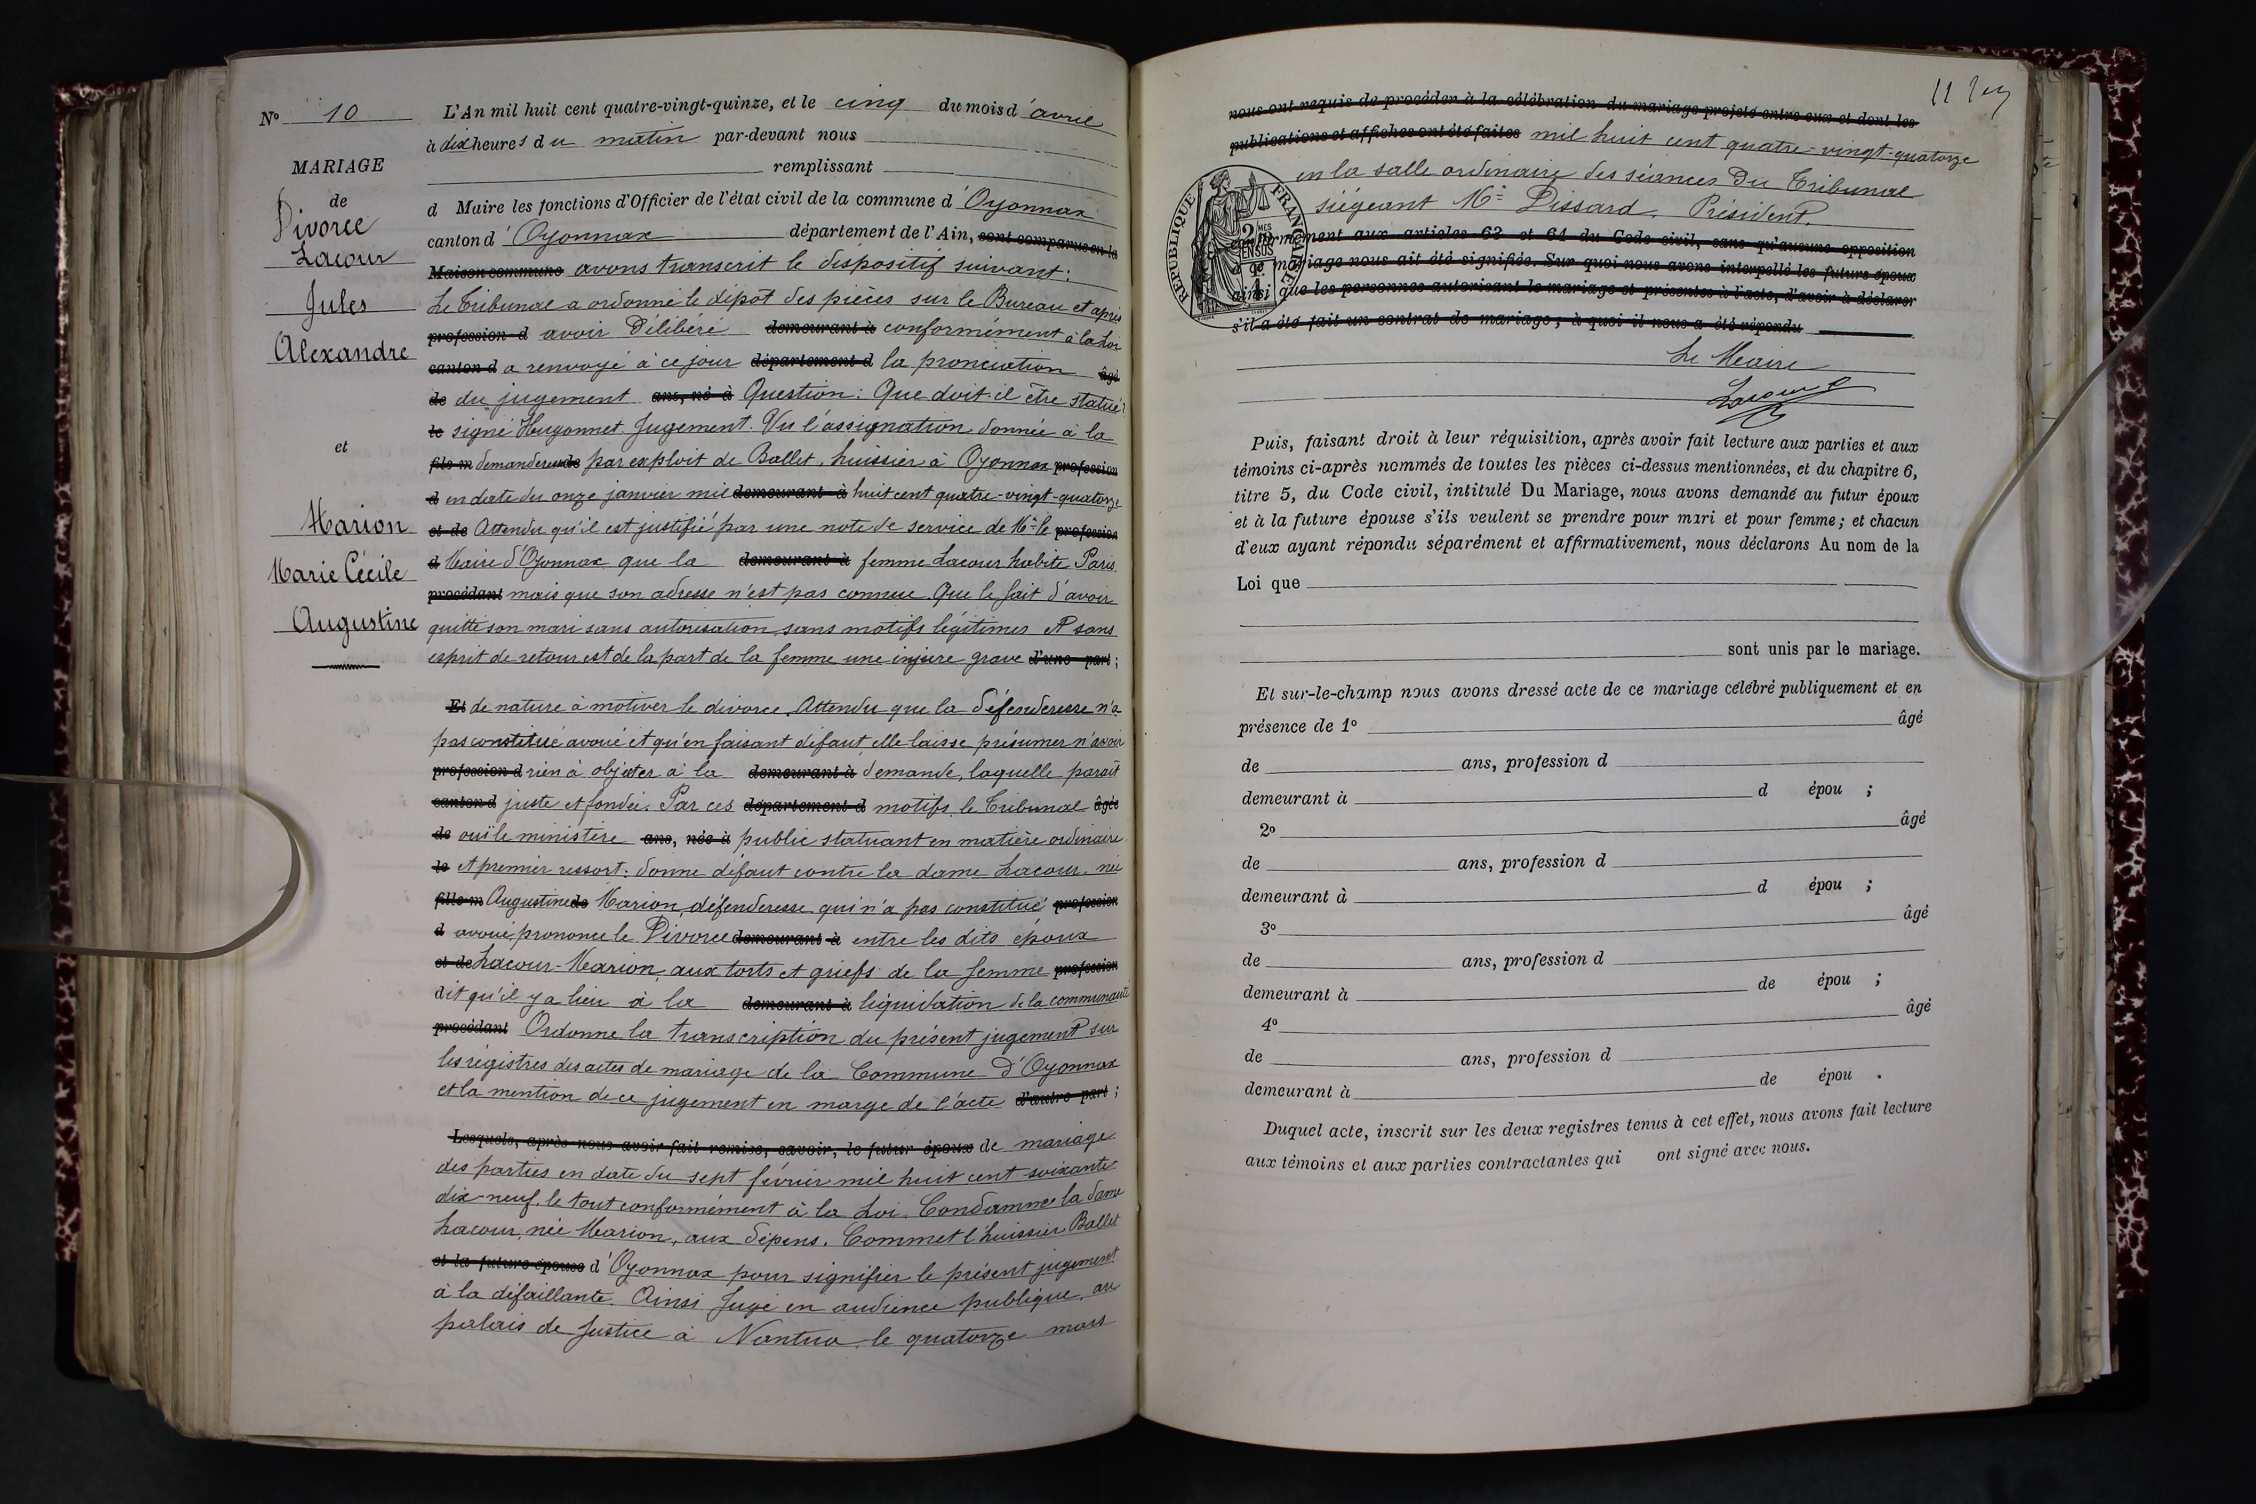 N° 10
MARIAGE
de
Divorce
Lacour
Jules
Alexandre
et
Marion
Marie Cécile
Augustine
L'An mil huit cent quatre-vingt-quinze, et le cinq du mois d'avril
à dix heures du matin par-devant nous
remplissant
d Maire les fonctions d'Officier de l'état civil de la commune d'Oyonnax
canton d'Oyonnax département de l'Ain, sont comparus en la
Maison commune avons transcrit le dispositif suivant :
Le Tribunal a ordonné le dépôt des pièces sur le Bureau et après
profession d avoir Délibéré demeurant à conformément à la Loi
canton d a renvoyé à ce jour département d la pronciation âgé
de du jugement ans, né à Question : Que doit-il être statué ?
le signé Hugonnet Jugement. Vu l'assignation donnée à la
fils m demanderesse de par exploit de Ballet, huissier à Oyonnax profession
d en date du onze janvier mil demeurant à huit cent quatre-vingt-quatorze
et de Attendu qu'il est justifié par une note de service de Mr le profession
d Maire d'Oyonnax que la demeurant à femme Lacour habite Paris
procédant mais que son adresse n'est pas connue. Que le fait d'avoir
quitté son mari sans autorisation sans motifs légitimes et sans
esprit de retour est de la part de la femme une injure grave d'une part ;
Et de nature à motiver le divorce. Attendu que la défenderesse n'a
pas constitué avoué et qu'en faisant défaut elle laisse présumer n'avoir
profession d rien à objecter à la demeurant à demande, laquelle parait
canton d juste et fondée. Par ces département d motifs le Tribunal âgée
de ouï le ministère ans, née à public statuant en matière ordinaire
le et premier ressort : donne défaut contre la dame Lacour née
fille m Augustine de Marion, défenderesse qui n'a pas constitué profession
d avoué prononce le Divorce demeurant à entre les dits époux
et de Lacour-Marion aux torts et griefs de la femme profession
dit qu'il y a lieu à la demeurant à liquidation de la communauté
procédant Ordonne la transcription du présent jugement sur
les régistres des actes de mariage de la Commune d'Oyonnax
et la mention de ce jugement en marge de l'acte d'autre part ;
Lesquels, après nous avoir fait remise, savoir, le futur époux de mariage
des parties en date du sept février mil huit cent soixante
dix-neuf, le tout conformément à la Loi. Condamne la dame
Lacour, née Marion, aux dépens. Commet l'huissier Ballet
et la future épouse d'Oyonnax pour signifier le présent jugement
à la défaillante. Ainsi Jugé en audience publique, au
palais de Justice à Nantua, le quatorze mars
nous ont requis de procéder à la célébration du mariage projeté entre eux et dont les
publications et affiches ont été faites mil huit cent quatre-vingt-quatorze
en la salle ordinaire des séances Du Tribunal
siégeant Mr Dissard. Président.
RÉPUBLIQUE FRANÇAISE
conformément aux articles 63 et 64 du Code civil, sans qu'aucune opposition
à ce mariage nous ait été signifiée. Sur quoi nous avons interpellé les futurs époux
ainsi que les personnes autorisant le mariage et présentes à l'acte, d'avoir à déclarer
s'il a été fait un contrat de mariage ; à quoi il nous a été répondu
Le Maire
Puis, faisant droit à leur réquisition, après avoir fait lecture aux parties et aux
témoins ci-après nommés de toutes les pièces ci-dessus mentionnées, et du chapitre 6,
titre 5, du Code civil, intitulé Du Mariage, nous avons demandé au futur époux
et à la future épouse s'ils veulent se prendre pour mari et pour femme ; et chacun
d'eux ayant répondu séparément et affirmativement, nous déclarons Au nom de la
Loi que
sont unis par le mariage.
Et sur-le-champ nous avons dressé acte de ce mariage célébré publiquement et en
présence de 1° âgé
de ans, profession d
demeurant à d épou ;
2° âgé
de ans, profession d
demeurant à d épou ;
3° âgé
de ans, profession d
demeurant à de épou ;
4° âgé
de ans, profession d
demeurant à de épou .
Duquel acte, inscrit sur les deux registres tenus à cet effet, nous avons fait lecture
aux témoins et aux parties contractantes qui ont signé avec nous.